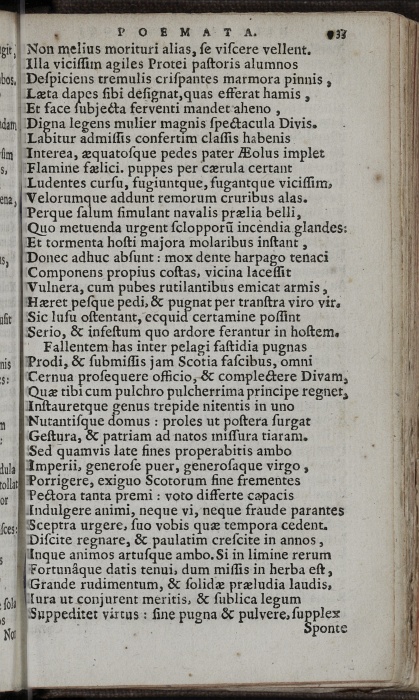 POEMATA. 933
Non melius morituri alias, se viscere vellent.
Illa vicissim agiles Protei pastoris alumnos
Despiciens tremulis crispantes marmora pinnis,
Læta dapes sibi designat, quas efferat hamis,
Et face subjecta ferventi mandet aheno,
Digna legens mulier magnis spectacula Divis.
Labitur admissis confertim classis habenis
Interea, æquatosque pedes pater Æolus implet
Flamine fælici. puppes per cærula certant
Ludentes cursu, fugiuntque, fugantque vicissim,
Velorumque addunt remorum cruribus alas.
Perque salum simulant navalis prælia belli,
Quo metuenda urgent sclopporū incendia glandes:
Et tormenta hosti majora molaribus instant,
Donec adhuc absunt: mox dente harpago tenaci
Componens propius costas, vicina lacessit
Vulnera, cum pubes rutilantibus emicat armis,
Hæret pesque pedi, & pugnat per transtra viro vir.
Sic lusu ostentant, ecquid certamine possint
Serio, & infestum quo ardore ferantur in hostem.
Fallentem has inter pelagi fastidia pugnas
Prodi, & submissis jam Scotia fascibus, omni
Cernua prosequere officio, & complectere Divam,
Quæ tibi cum pulchro pulcherrima principe regnet,
Instauretque genus trepide nitentis in uno
Nutantisque domus: proles ut postera surgat
Gestura, & patriam ad natos missura tiaram.
Sed quamvis late fines properabitis ambo
Imperii, generose puer, generosaque virgo,
Porrigere, exiguo Scotorum fine frementes
Pectora tanta premi: voto differte capacis
Indulgere animi, neque vi, neque fraude parantes
Sceptra urgere, suo vobis quæ tempora cedent.
Discite regnare, & paulatim crescite in annos,
Inque animos artusque ambo. Si in limine rerum
Fortunâque datis tenui, dum missis in herba est,
Grande rudimentum, & solidæ præludia laudis,
Iura ut conjurent meritis, & sublica legum
Suppeditet virtus: sine pugna & pulvere, supplex
Sponte